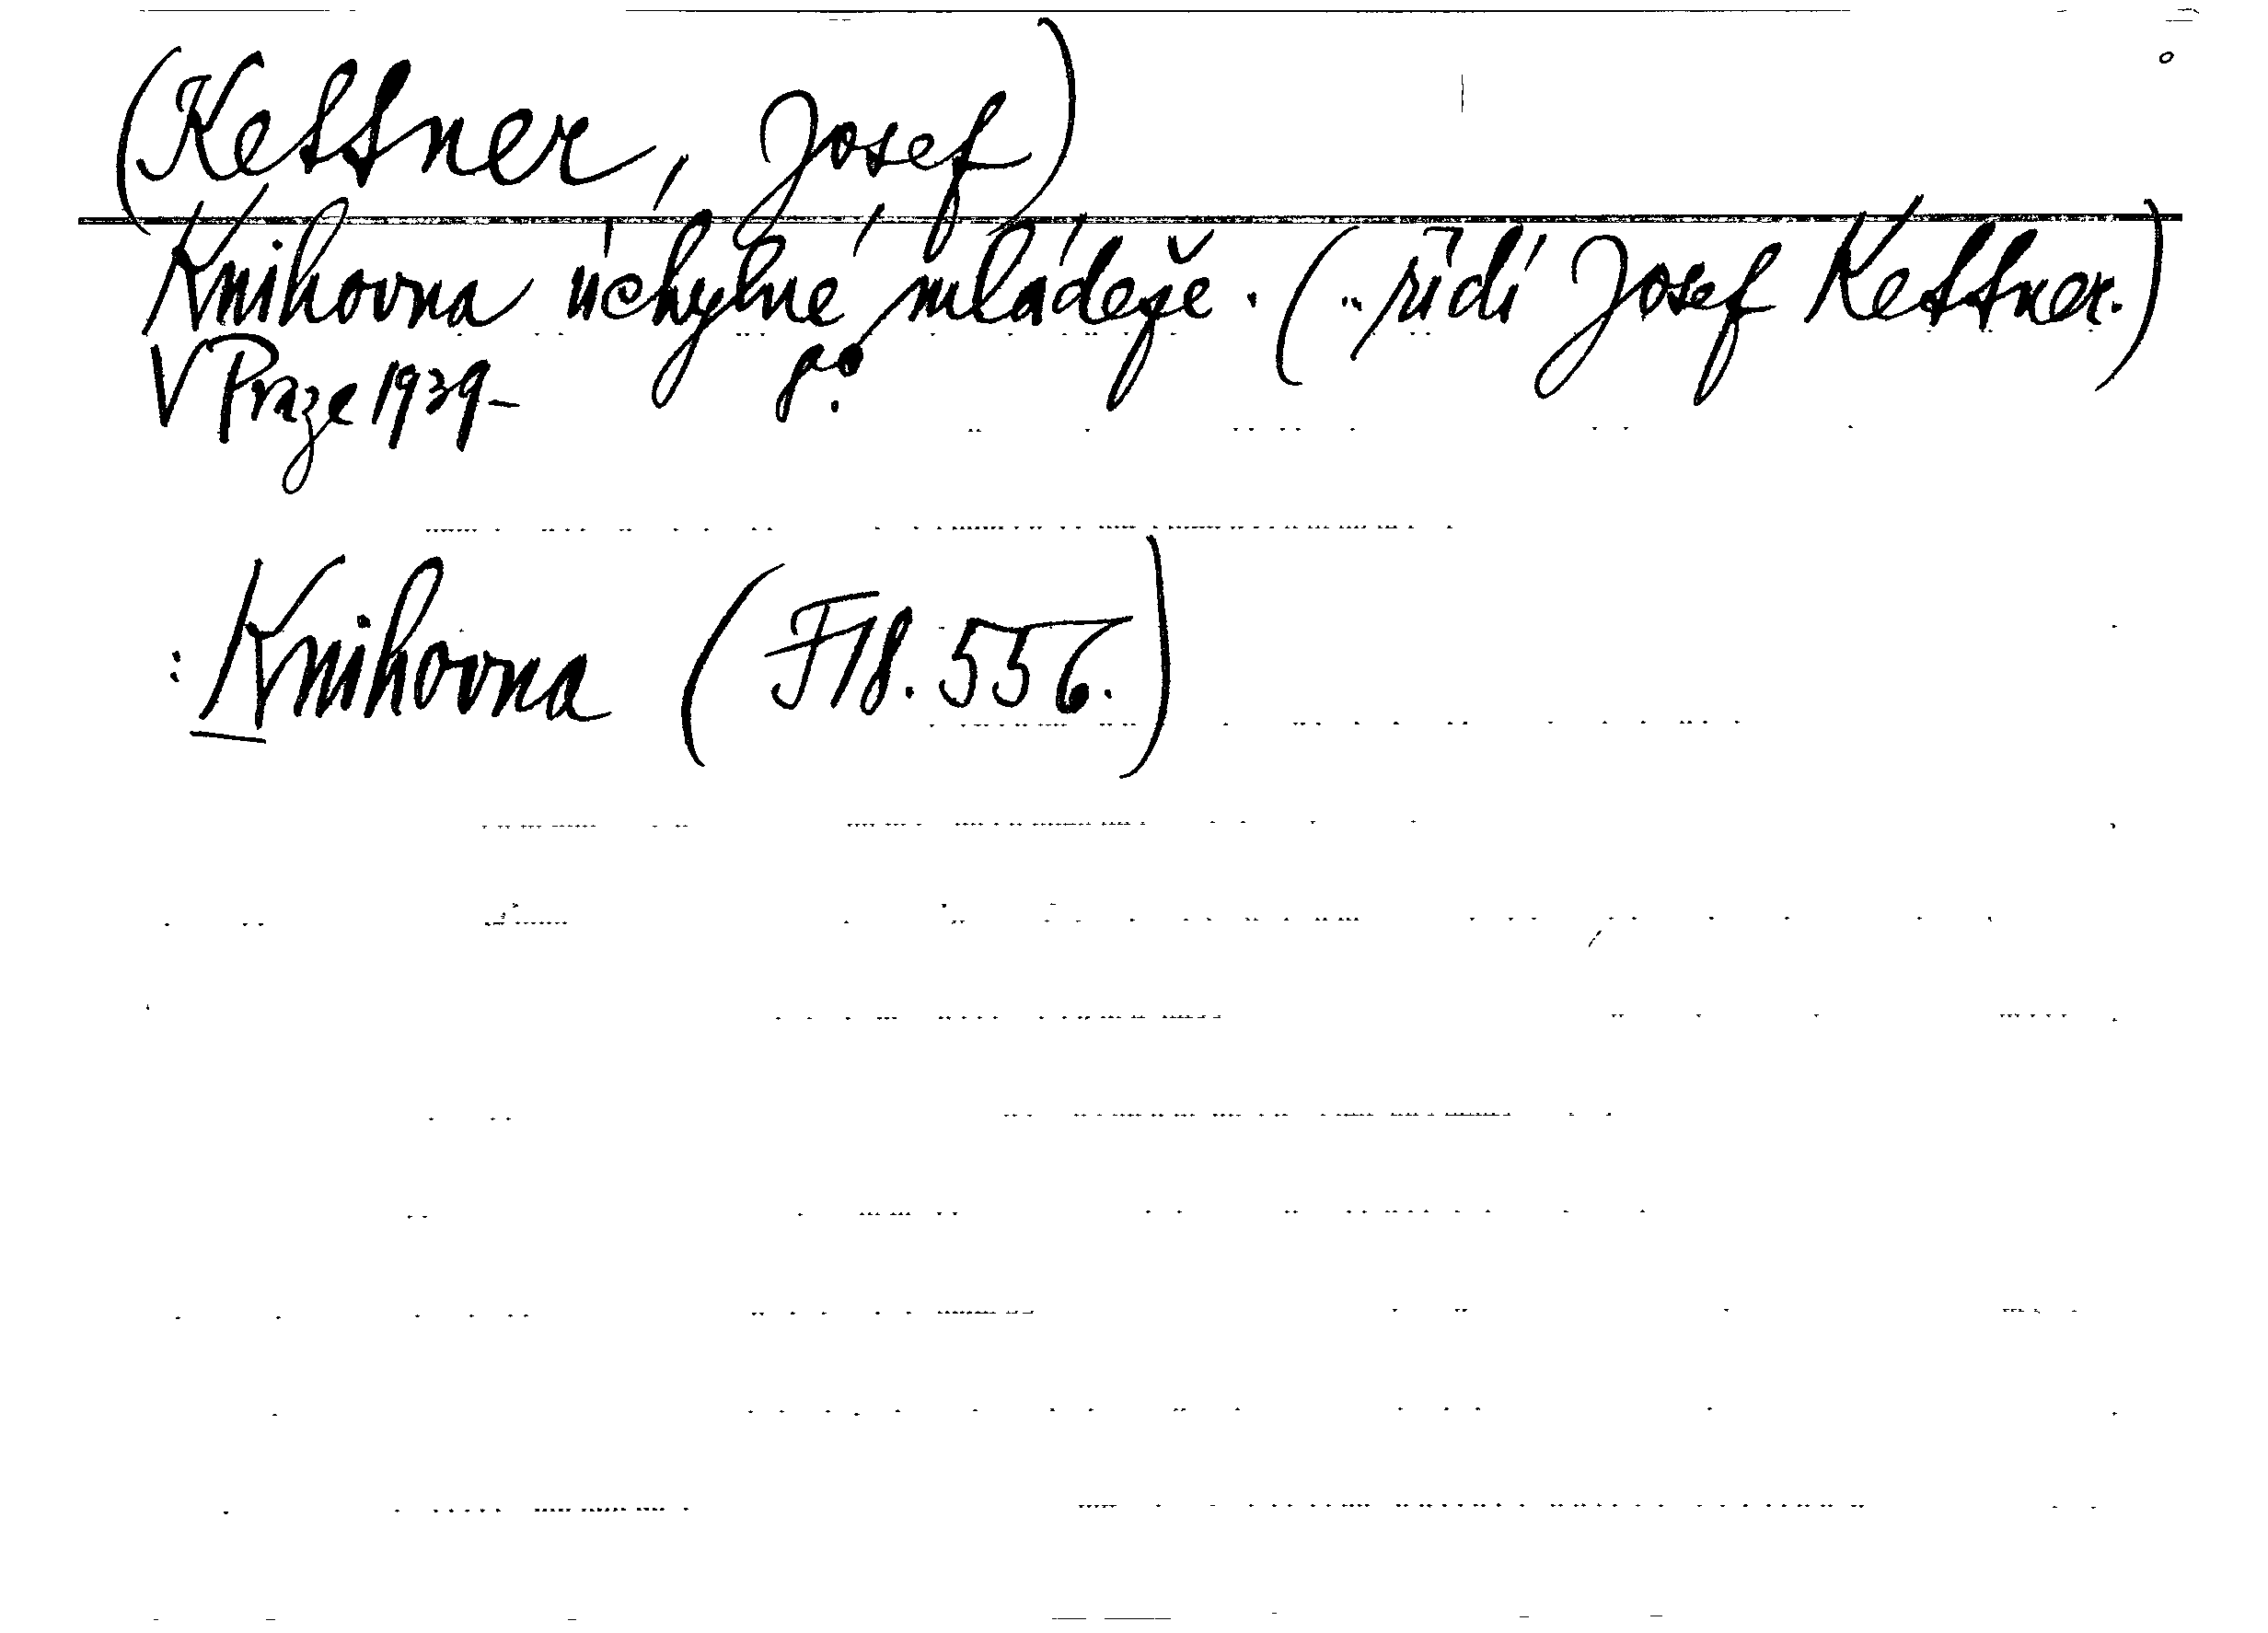 (Kettner, Josef)
Knihovna úchylné mládeže. (.. řídí Josef Kettner.)
V Praze 1939- 8°.
: Knihovna (F18.556.)